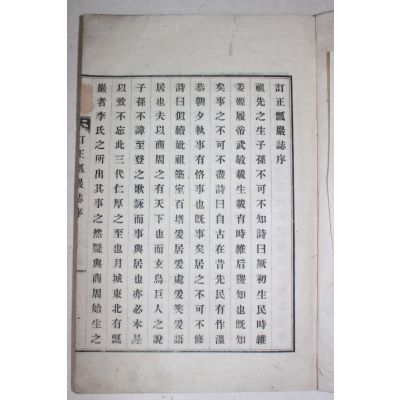 訂正瓢巖誌序
祖先之生子孫不可不知詩曰厥初生民時維
姜嫄履帝武敏載生載育時維后稷知也旣知
矣事之不可不盡詩曰自古在昔先民有作溫
恭朝夕執事有恪事也旣事矣居之不可不修
詩曰似續妣祖築室百堵爰居爰處爰笑爰語
居也夫以商周之有天下也而玄鳥巨人之說
子孫不諱至登之歌詠而事與居也亦必本是
以致不忘此三代仁厚之至也月城東北有瓢
巖者李氏之所出其事之然疑與商周始生之
訂正瓢巖誌序